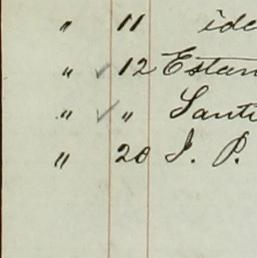 " 11 ide
" ✓ 12 Estan
" ✓ " Santi
" 20 J. P.